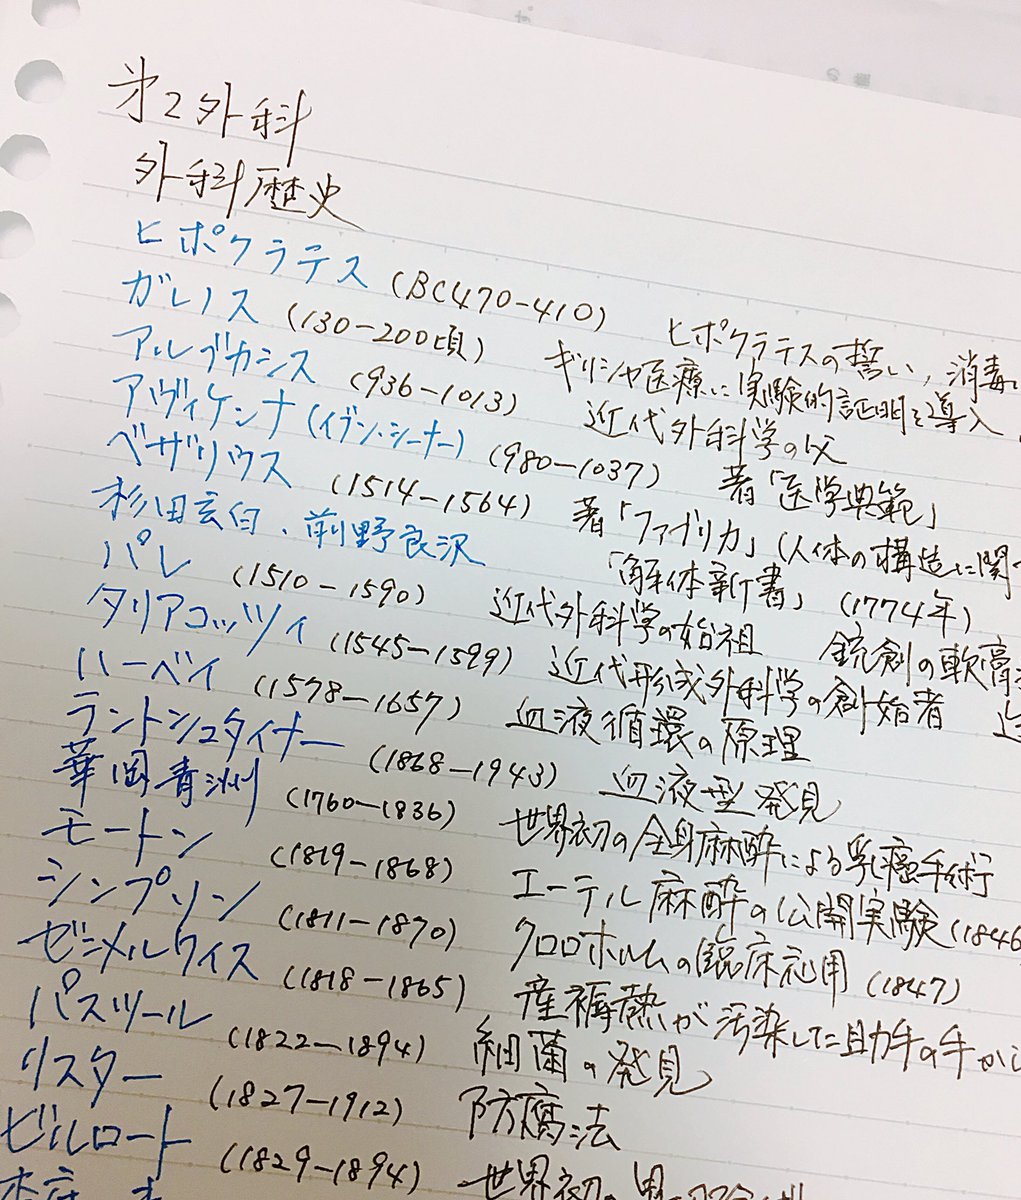 第2外科
外科歴史
ヒポクラテス (BC470-410) ヒポクラテスの誓い, 消毒
ガレノス (130-200頃) ギリシャ医療に実験的証明を導入
アルブカシス (936-1013) 近代外科学の父
アヴィケンナ(イブン・シーナー) (980-1037) 著「医学典範」
ベザリウス (1514-1564) 著「ファブリカ」(人体の構造に関
杉田玄白、前野良沢 「解体新書」 (1774年)
パレ (1510-1590) 近代外科学の始祖 銃創の軟膏
タリアコッツィ (1545-1599) 近代形成外科学の創始者
ハーベイ (1578-1657) 血液循環の原理
ラントシュタイナー (1868-1943) 血液型発見
華岡青洲 (1760-1836) 世界初の全身麻酔による乳癌手術
モートン (1819-1868) エーテル麻酔の公開実験 (1846
シンプソン (1811-1870) クロロホルムの臨床応用 (1847)
ゼンメルワイス (1818-1865) 産褥熱が汚染した助手の手から
パスツール (1822-1894) 細菌の発見
リスター (1827-1912) 防腐法
ビルロート (1829-1894) 世界初の胃